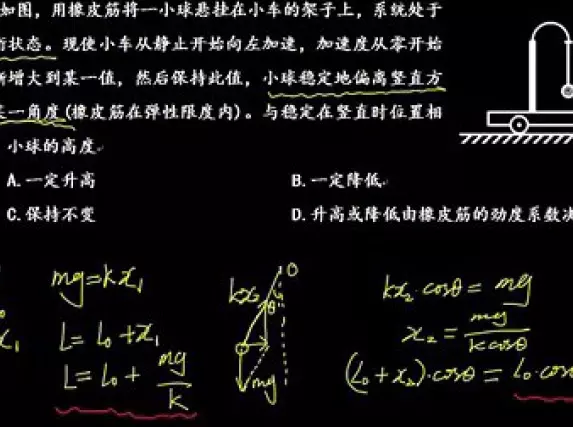 如图，用橡皮筋将一小球悬挂在小车的架子上，系统处于
衡状态。现使小车从静止开始向左加速，加速度从零开始
渐增大到某一值，然后保持此值，小球稳定地偏离竖直方
某一角度(橡皮筋在弹性限度内)。与稳定在竖直时位置相
小球的高度
A.一定升高 B.一定降低
C.保持不变 D.升高或降低由橡皮筋的劲度系数决
mg=kx₁ kx₂ O θ kx₂·cosθ = mg
x₁ L = L₀+x₁ x₂ = mg/kcosθ
L = L₀ + mg/k mg (L₀+x₂)·cosθ = L₀·cos